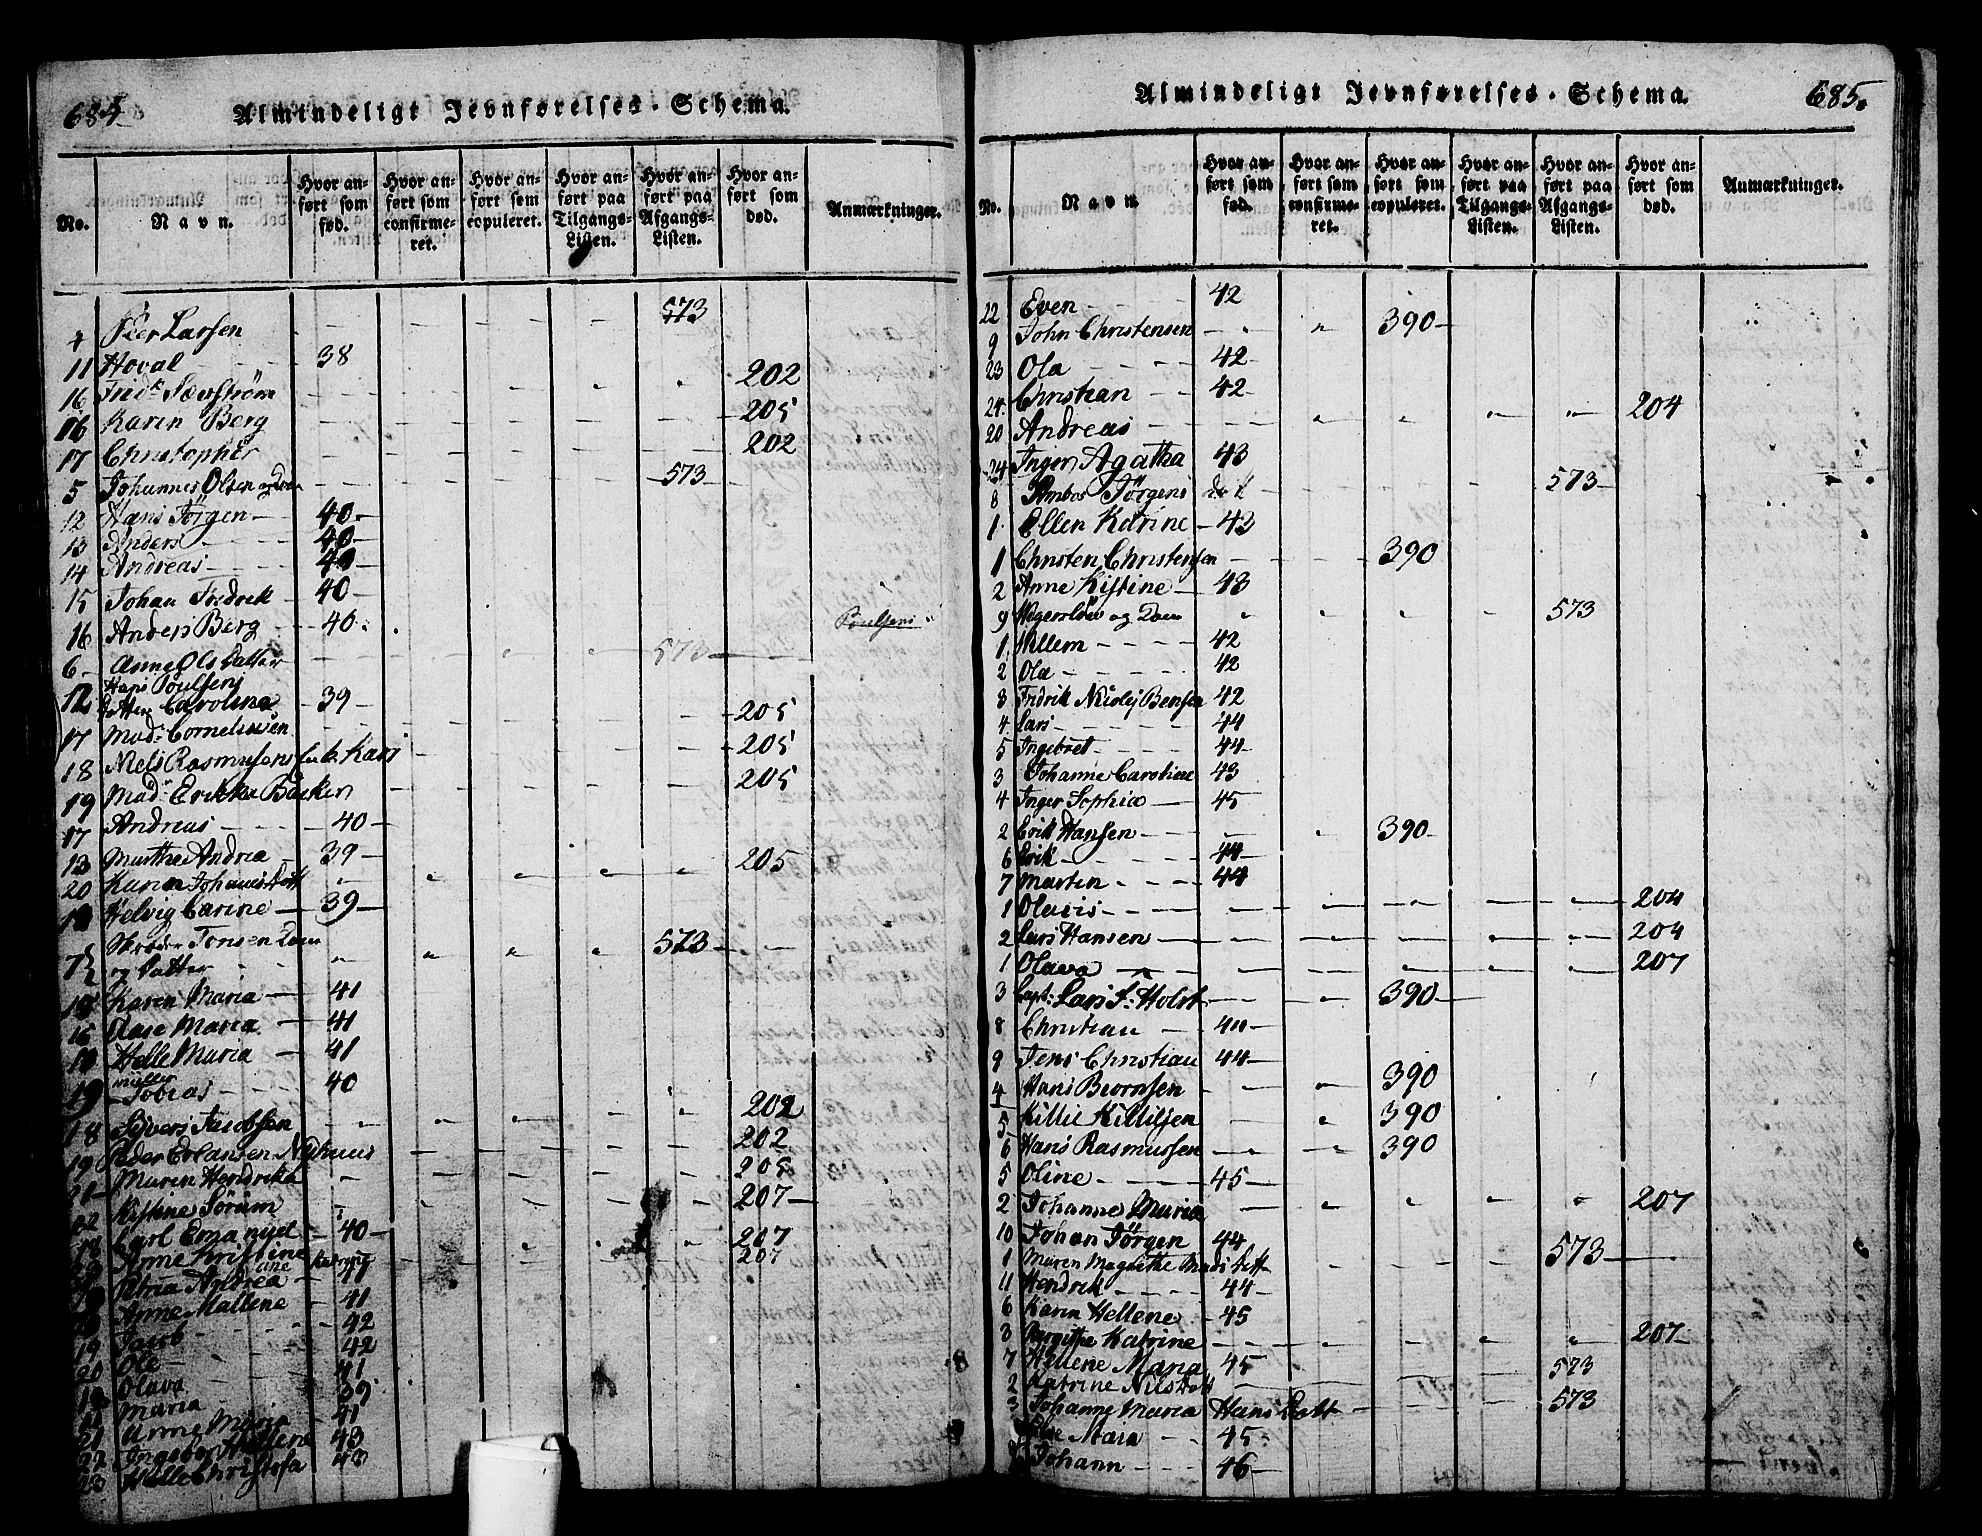 684
Almindeligt Jevnførelses-Schema.
No.
Navn.
Hvor anført som fød.
Hvor anført som confirmeret.
Hvor anført som copuleret.
Hvor anført paa Tilgangs-Listen.
Hvor anført paa Afgangs-Listen.
Hvor anført som død.
Anmærkninger.
4 Peer Larsen 573
11 Hoval 38
16 202
16 Karen Berg 205
17 Christopher 202
5 Johannes Olsen 573
12 Hans Jörgen 40
13 Anders 40
14 Andreas 40
15 Johan Fredrik 40
16 Anders Berg 40 Poulsens
6 Anne Ols Datter 573
Hans Poulsens
12 Datter Carolina 39
17 Mad: Corneliusen 205
18 Niels Rasmusens Kari 205
19 Mad: Erikka Backer 205
17 Andreas 40
13 Marthe Andrea 39
20 Karen Johannesdatt 205
Helvig Carine 39
Jensen 573
7 og Datter
Karen Maria 41
Aase Maria 41
Helle Maria 41
19 Tobias 40
18 Syvers Jacobsen 202
19 Peder Erlansen 202
21 Maren Hendrika 205
22 Kistine Sörum 207
18 Carl Emanuel 40
Anne Kristine 207
Petria Andrea 41 207
Anne Mallene 41
19 Jacob 42
20 Ole 42
Olava 41
Maria 39
21 Anne Maria 41
22 Ingebor Hellene 43
23 Helle Christofa 43
685.
Almindeligt Jevnførelses-Schema.
No.
Navn.
Hvor anført som fød.
Hvor anført som confirmeret.
Hvor anført som copuleret.
Hvor anført paa Tilgangs-Listen.
Hvor anført paa Afgangs-Listen.
Hvor anført som død.
Anmærkninger.
22 Even 42
9 John Christensen 390
23 Ola 42
24 Christian 42
20 Andreas 204
24 Inger Agatha 43
8 Jörgens 573
1 Ellen Katrine 43
1 Christen Christensen 390
2 Anne Kistine 43
9 og Dom 573
1 Willem 42
2 Ola 42
3 Fridrik Nicolej Bensen 42
4 Lars 44
5 Ingebret 44
3 Johanne Caroline 43
4 Inger Sophia 45
2 Erik Hansen 390
6 Erik 44
7 Marten 44
1 Olavis 204
2 Lars Hansen 204
1 Olava 207
3 Capt: Lars S: Holst 390
8 Christian 44
9 Jens Christian 44
4 Hans Beornsen 390
5 Killie Killilsen 390
6 Hans Rasmussen 390
5 Oline 45
2 Johanne Maria 207
10 Johan Jörgen 44
1 Maren Magrethe Mads Datt 573
11 Hendrik 44
6 Karen Hellene 45
3 Katrine 207
7 Hellene Maria 45
2 Katrine Nilsdatt 573
3 Johanne Maria Hans Datt 573
Else Maria 45
Johann 46